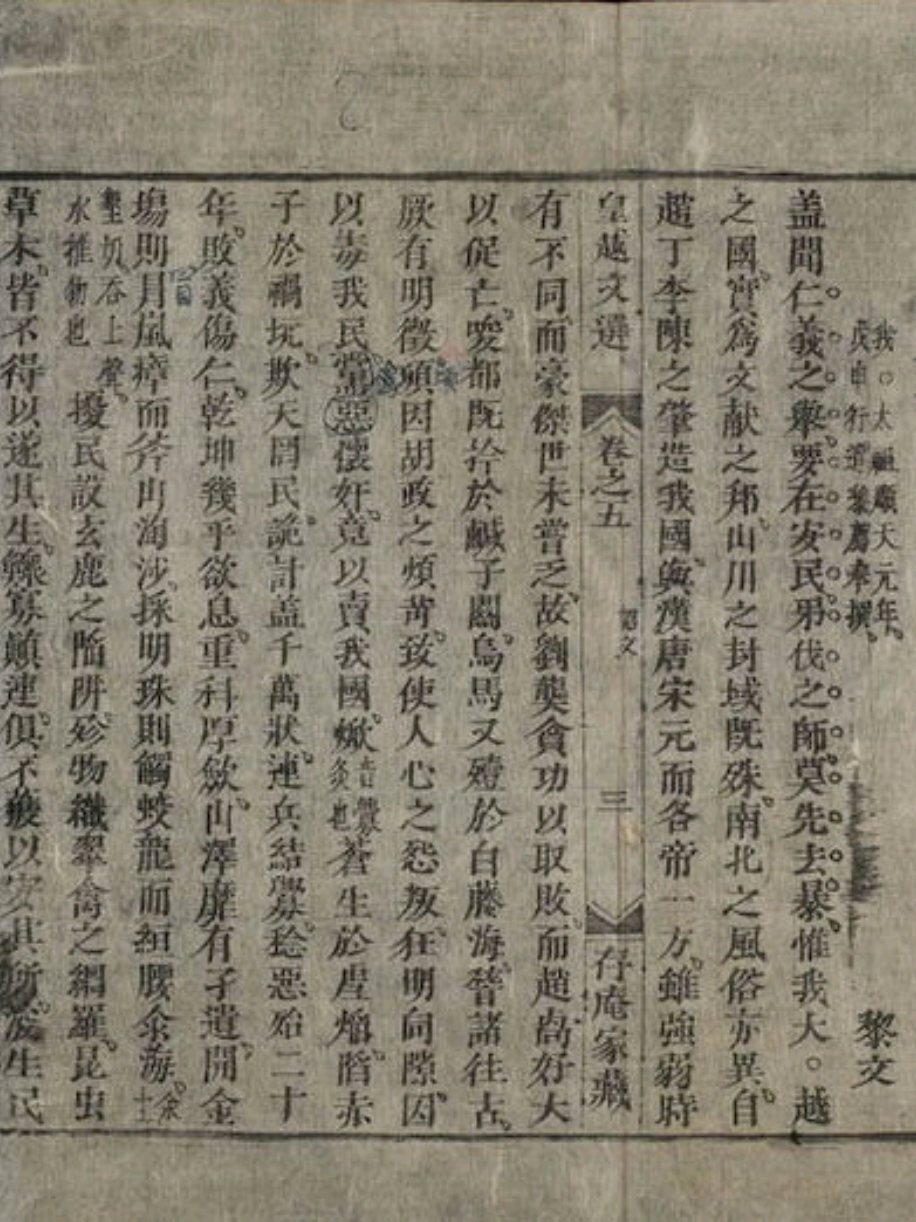 黎文
我○太祖順天元年
戊申行遣黎廌奉撰
盖聞仁義之舉要在安民弔伐之師莫先去暴惟我大○越
之國實爲文献之邦山川之封域既殊南北之風俗亦異自
趙丁李陳之肇造我國與漢唐宋元而各帝一方雖強弱時
皇越文選 卷之五 黎文 三 存庵家藏
有不同而豪傑世未嘗乏故劉龑貪功以取敗而趙卨好大
以促亡唆都既拾於鹹子關烏馬又殪於白藤海嵇諸往古
厥有明徵頃因胡政之煩苛致使人心之怨叛狂明伺隙因
以毒我民黨惡懷奸竟以賣我國焮音釁灸也蒼生於虐焰䧟赤
子於禍坑欺天罔民詭計盖千萬狀連兵結釁稔惡殆二十
年敗義傷仁乾坤幾乎欲息重科厚歛山澤靡有孑遺開金
塲則冐嵐瘴而斧山淘沙採明珠則觸蛟龍而絙腰汆海汆土
墾切吞上聲水推物也擾民設玄鹿之䧟阱殄物織翠禽之網羅昆虫
草木皆不得以遂其生鰥寡顛連俱不獲以安其所浚生民